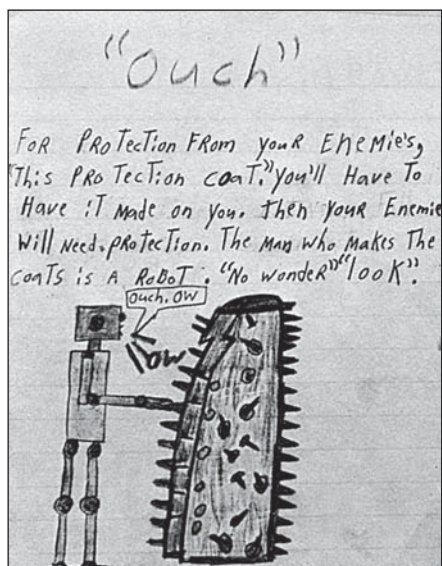 "Ouch"
FOR PROTECTION FROM YOUR ENEMIE'S,
"THIS PROTECTION COAT." YOU'LL HAVE TO
HAVE IT MADE ON YOU. THEN YOUR ENEMIE
WILL NEED. PROTECTION. THE MAN WHO MAKES THE
COATS IS A ROBOT. "NO WONDER" "LOOK".
Ouch. OW
OW